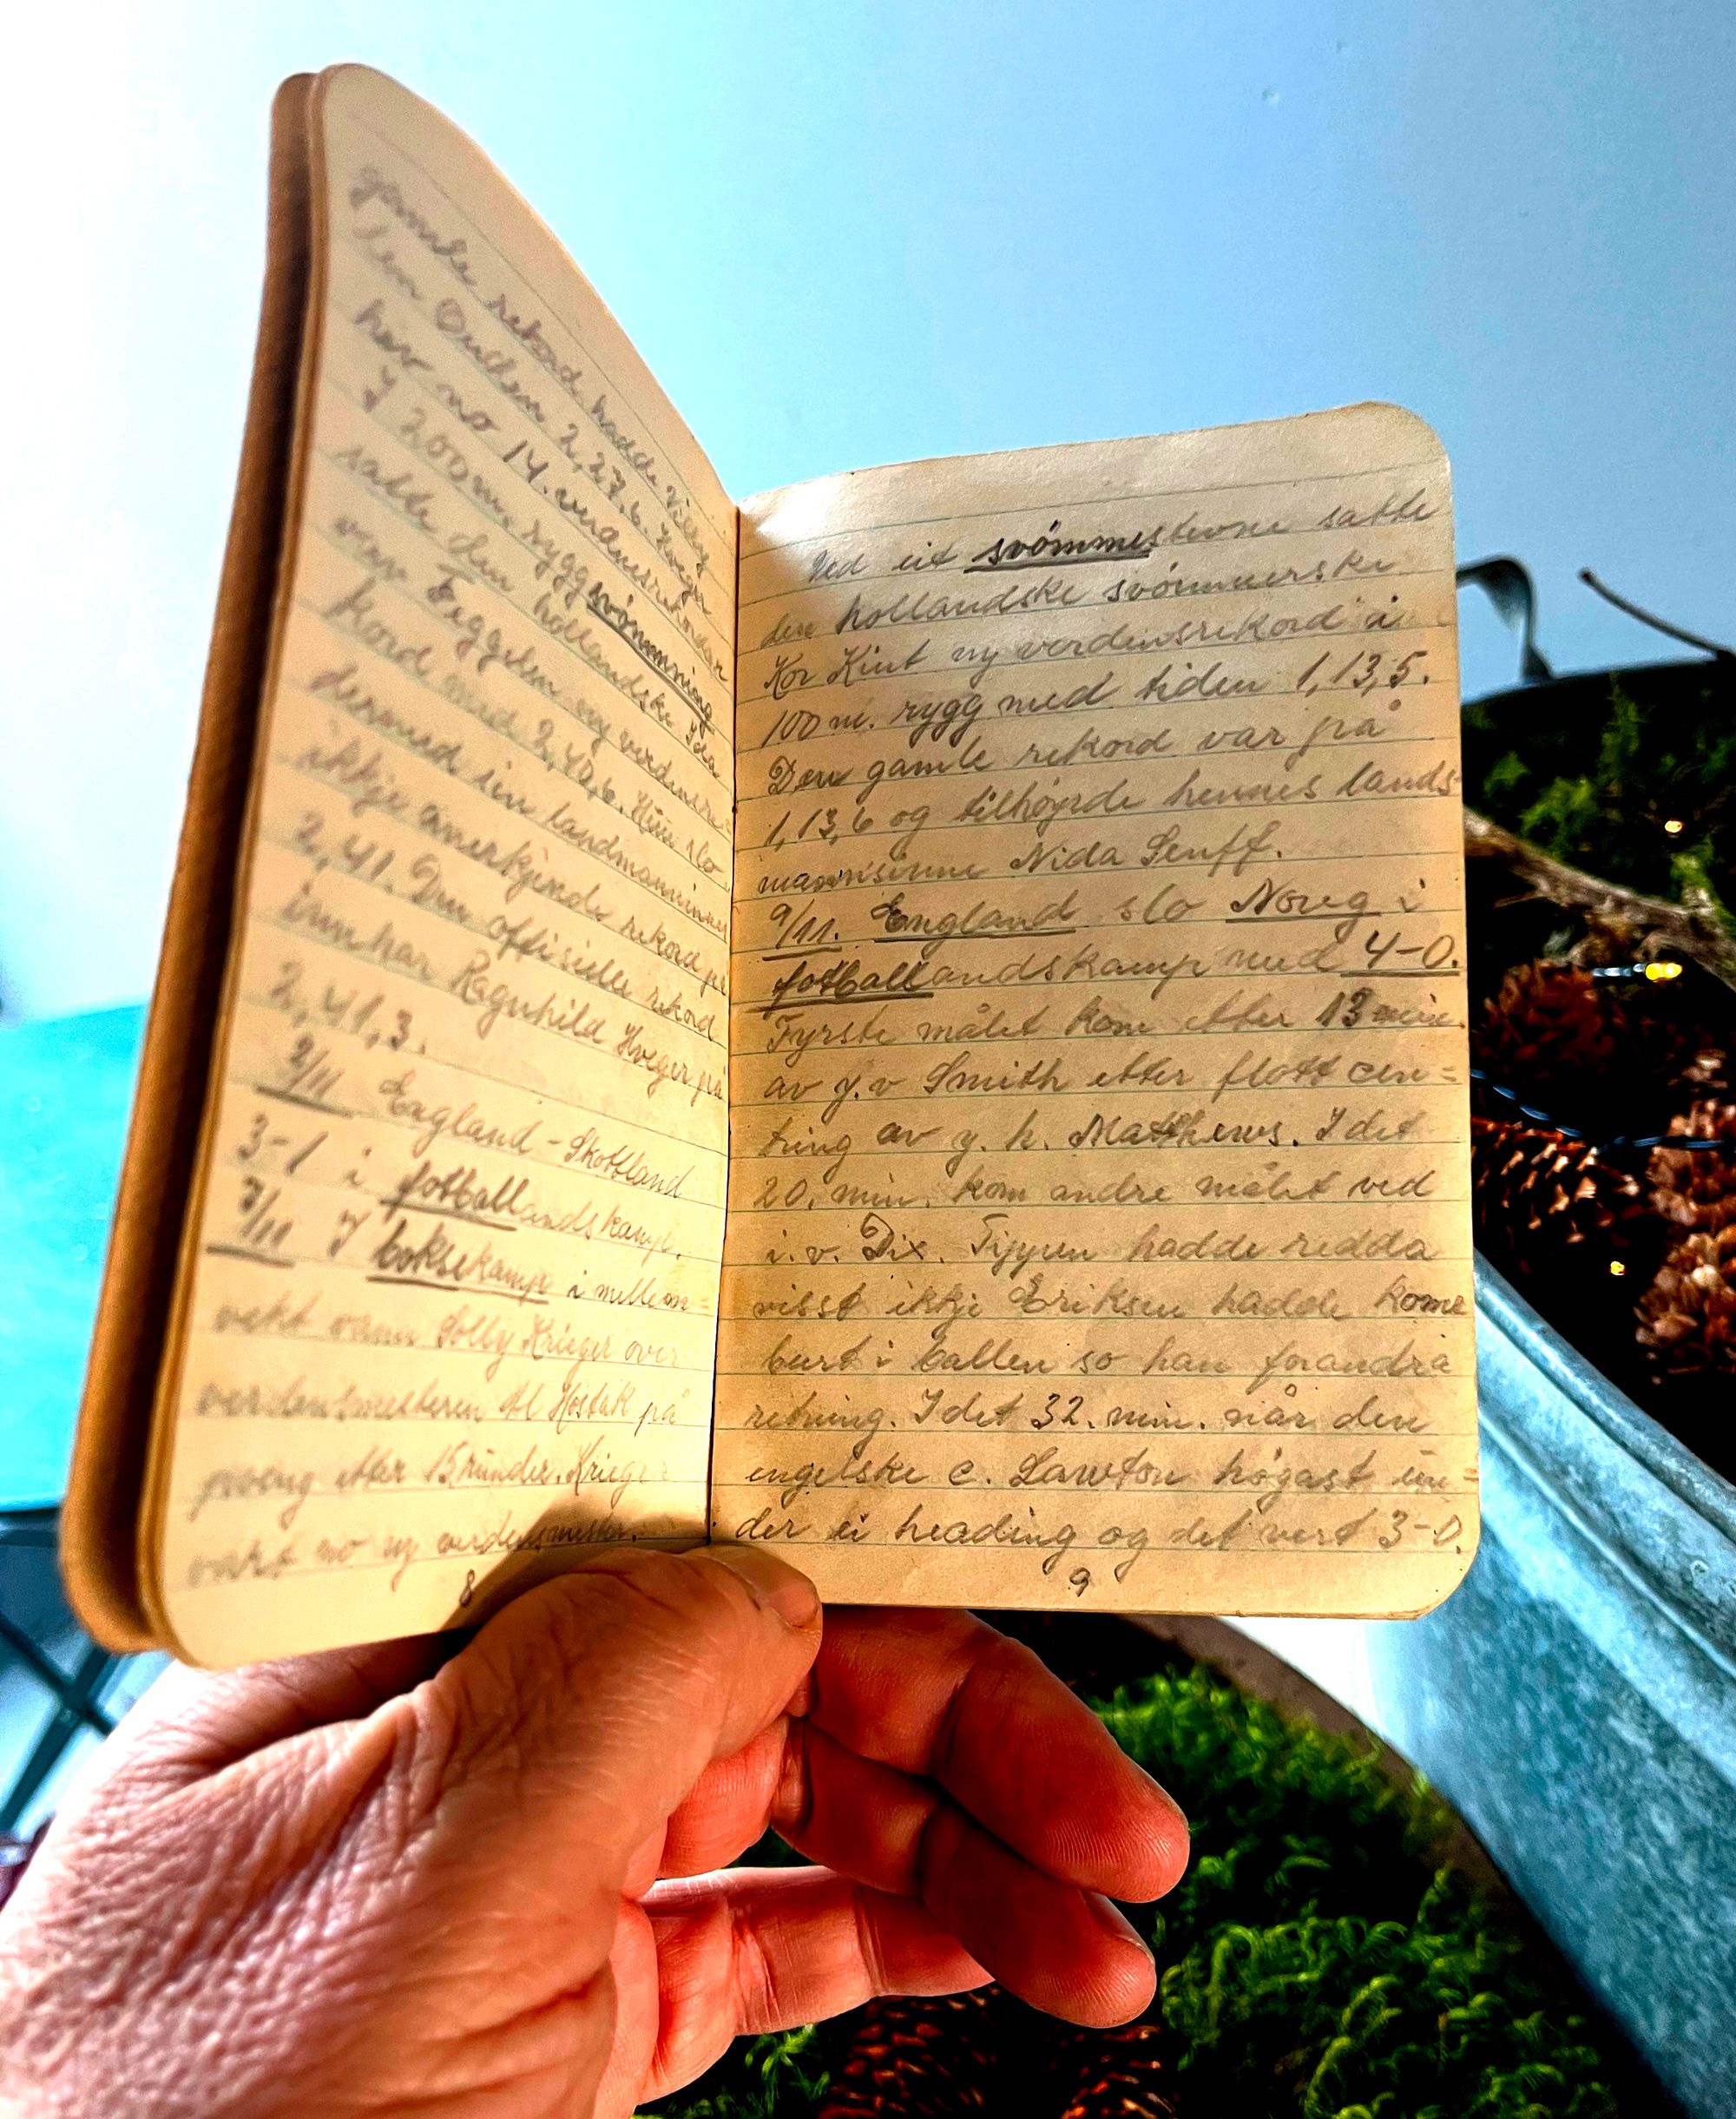 gamle rekord hadde Willy
den Ouden 2,27,6. Hveger
har no 14. verdensrekordar
I 200 m. rygg svömming
satte den hollandske Ida
van Feggelen ny verdensre-
kord med 2,40,6. Hun slo
dermed sin landmanninnes
ikkje anerkjende rekord på
2,41. Den offisielle rekord
innhar Ragnhild Hveger på
2,41,3.
2/11 England - Skottland
3-1 i fotballandskamp.
7/11 I boksekamp i mellom=
vekt vann Solly Krieger over
verdensmesteren Al Hostak på
poeng etter 15 runder. Krieger
vart no ny verdensmester.
8
Ved eit svömmestevne satte
den hollandske svömmerske
Kor Kint ny verdensrekord i
100 m. rygg med tiden 1,13,5.
Den gamle rekord var på
1,13,6 og tilhøyrde hennes lands-
manninne Nida Senff.
9/11. England slo Noreg i
fotballandskamp med 4-0.
Fyrste målet kom etter 13 min.
av y. v Smith etter flott cen=
tring av y. h. Matthews. I det
20. min. kom andre målet ved
i. v. Dix. Tippen hadde redda
visst ikkje Eriksen hadde kome
burt i ballen so han forandra
retning. I det 32. min. når den
engelske c. Lawton högast un=
der ei heading og det vert 3-0.
9